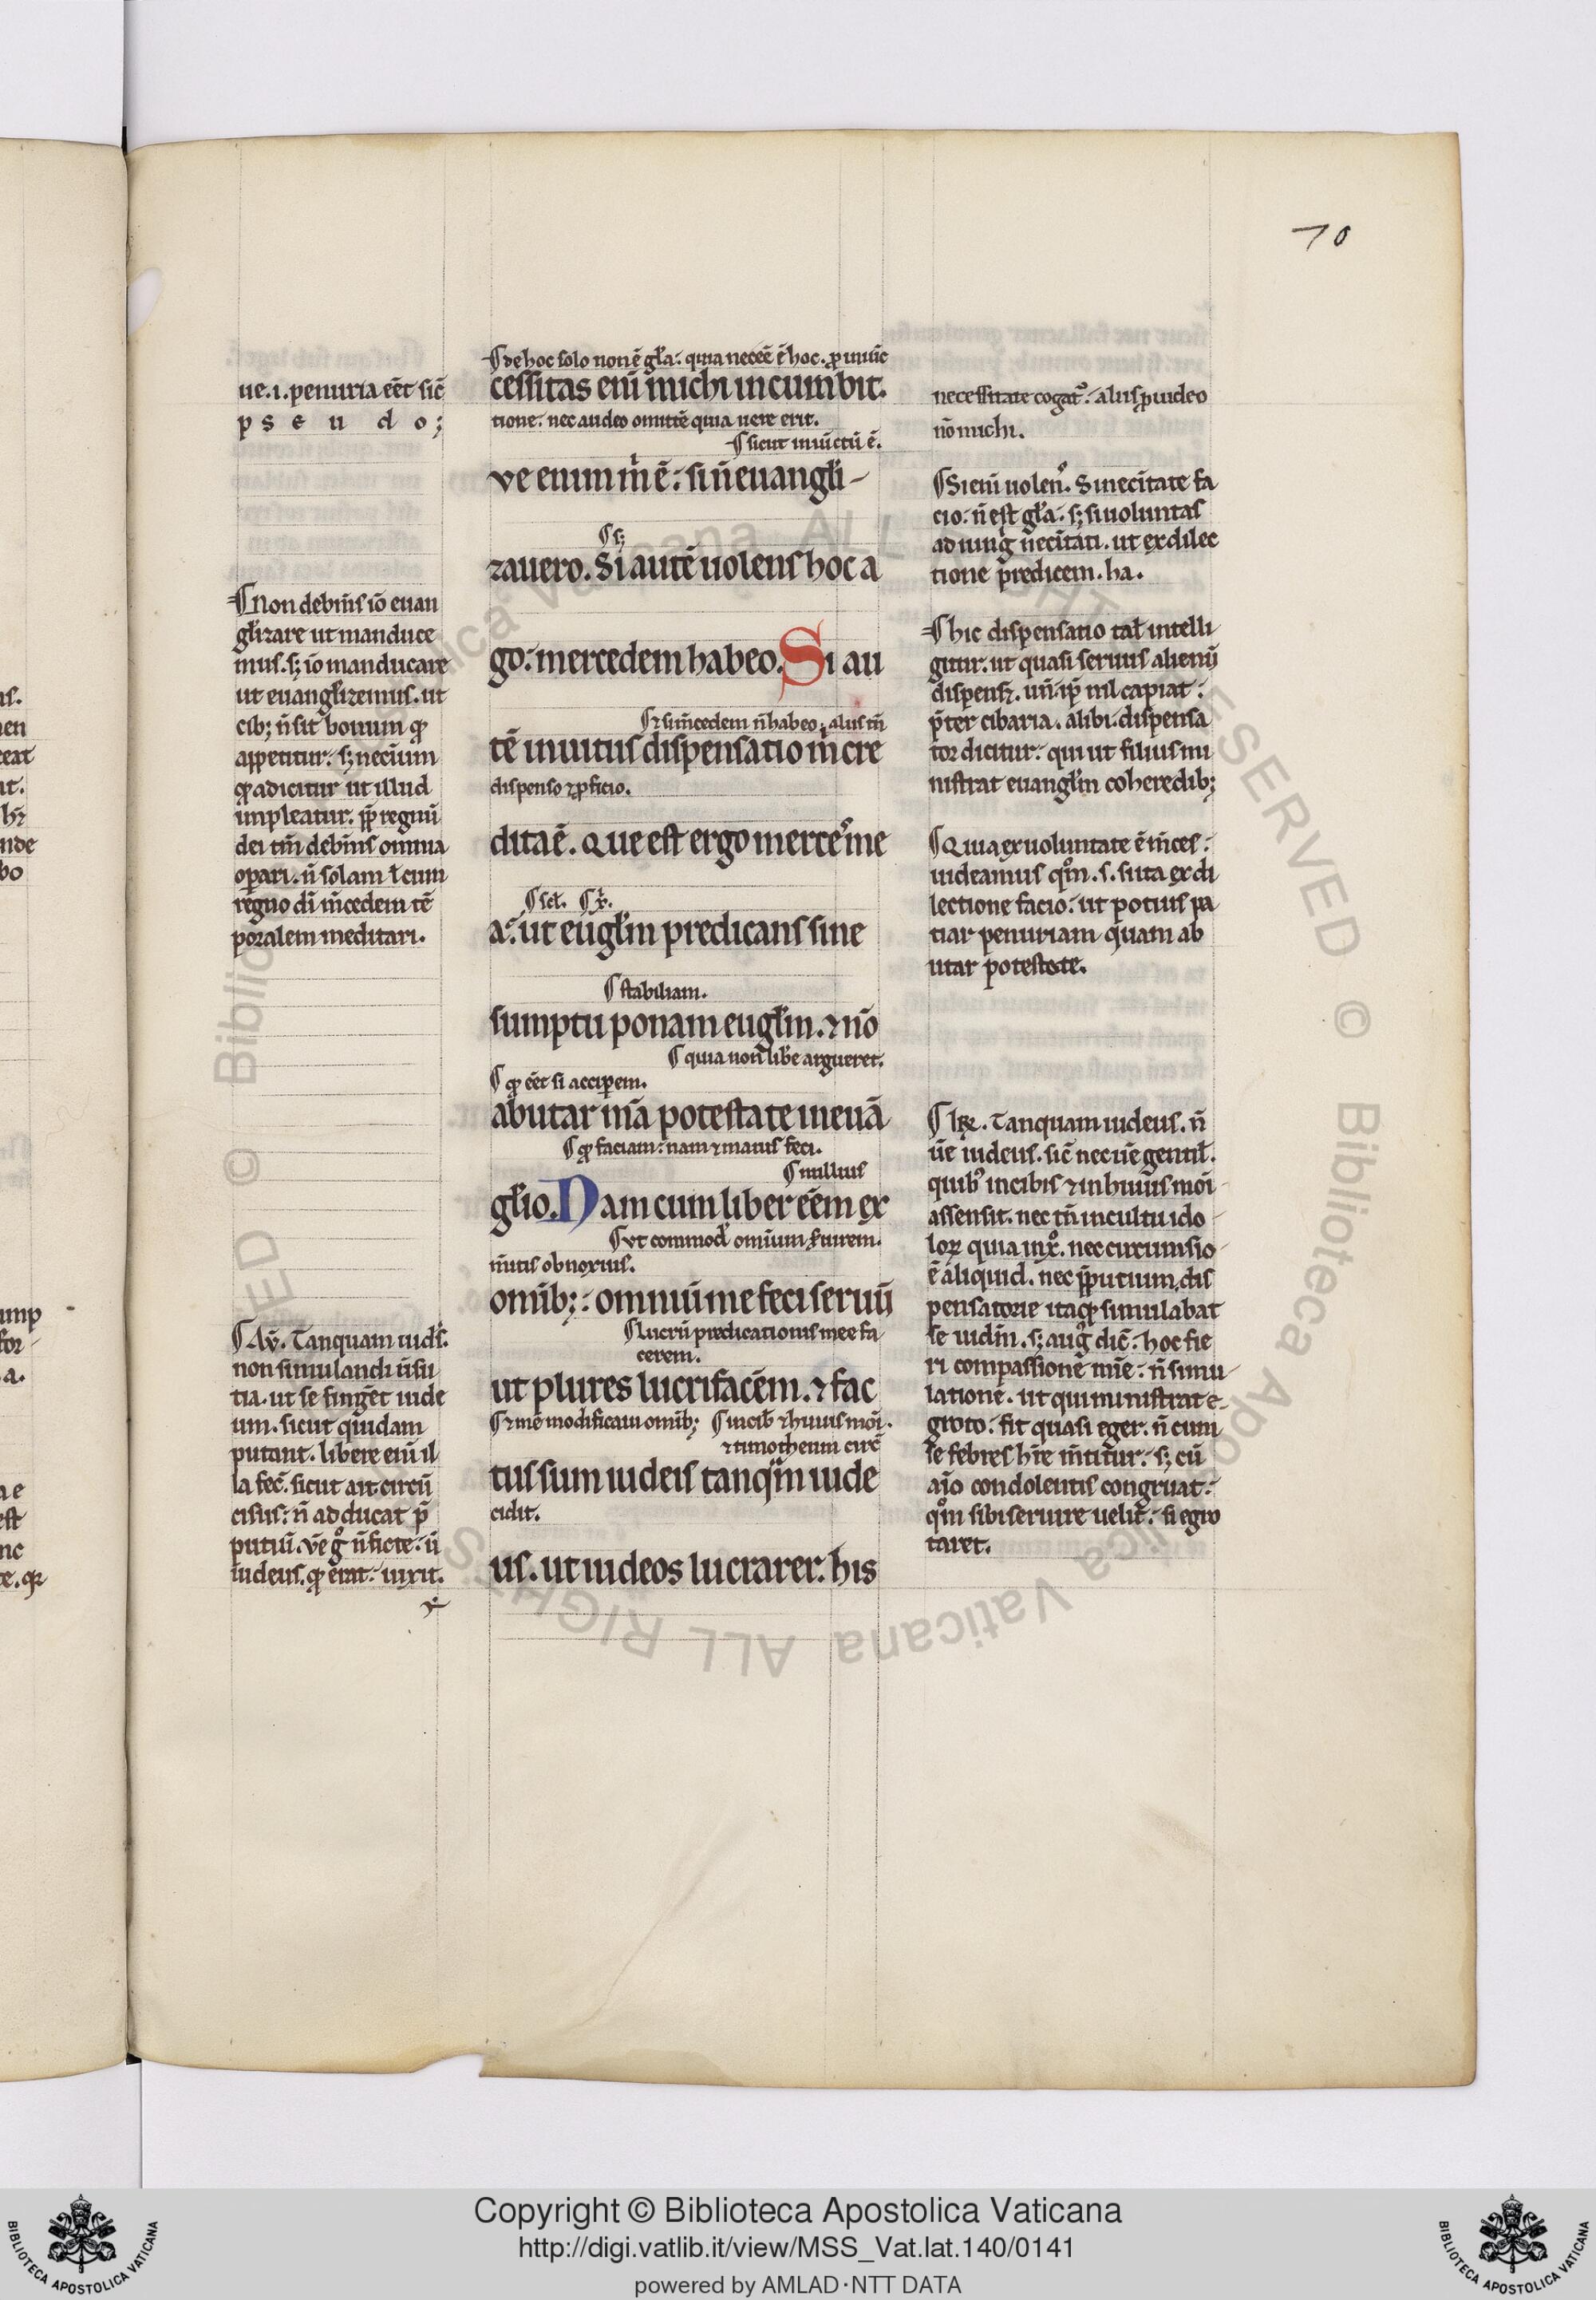 70
ue.i. penuria eēt sic̄
p s e u d o;
¶Non debem̄s iō euan
gl̄izare ut manduce
mus. s; iō manducare
ut euangl̄izemus. ut
cib; n̄ sit bonum qđ
appetitur. s; neccīum
qđ adicitur ut illud
impleatur. ꝓp̄ regnū
dei tm̄ debem̄s omnia
oꝑari. n̄ solam ł cum
regno dī m̄cedem tē
poralem meditari.
¶Aꝟ. Tanquam iudꝰ.
non simulandi ūsu
tia. ut se finḡet iude
um. sicut quidam
putant. libere enī il
la fec̄. sicut ait. circū
cisus: n̄ adducat p̄
putiū. ꝟe gͦ n̄ ficte. n̄
iudeus. qđ erat. iuxit.
¶de hoc solo non ē gl̄a. quia necēe ē hoc. ꝓ iniūc
cessitas enī michi incumbit.
tione. nec audeo omittē quia uere erit.
¶sicut iniūctū ē.
ve enim m̄ ē: si n̄ euangl̄i-
¶s;
zauero. Si autē uolens hoc a
go: mercedem habeo. Si au
¶⁊ si m̄cedem n̄ habeo. aliis tn̄
tē inuitus dispensatio m̄ cre
dispenso ⁊ ꝓficio.
dita ē. Que est ergo merceˢ me
¶scł. ¶x̄.
a: ut eūgl̄m predicans sine
¶stabiliam.
sumptu ponam eugl̄m. ⁊ nō
¶quia non libe argueret.
¶qđ eēt si acciꝑem.
abutar mā potestate in euā
¶qđ faciam: nam ⁊ maius feci.
¶nullius
gl̄io. Nam cum liber eēm ex
¶Vt commodꝰ omnium s̄uirem.
m̄itis obnoxius.
omīb;: omniū me feci seruū
¶lucrū predicationis mee fa-
cerem.
ut plures lucrifacēm. ⁊ fac
¶⁊ me modificaui omīb; ¶in cib̄ ⁊ huiusmōi.
⁊ timotheum circ̄
tus sum iudeis tanqͣm iude
cidit.
us. ut iudeos lucrarer. his
necessitate cogatͬ. aliis ꝓuideo
nō michi.
¶Si enī uolenꝰ. Si necīitate fa
cio: n̄ est gl̄a. s; si uoluntas
ad iungͥ necīitati. ut ex dilec
tione p̄redicem. ha.
¶hic dispensatio tał intelli
gitur. ut quasi seruus alienū
dispens;. un̄ ip̄ nil capiat:
p̄ter cibaria. alibi. dispensa
tor dicitur: qui ut filius mi
nistrat euangl̄m coheredib;
¶Quia ex uoluntate ē m̄ces:
uideamus qͦm. s. si ita ex di
lectione facio: ut potius pa
tiar penuriam quam ab
utar potestate.
Tanquam iudeus. n̄
ūe iudeus. sic̄ nec ūe gentił.
quibꝰ in cibis ⁊ in huiusmōi
assensit. nec tn̄ in cultu ido-
loꝝ quia in xͦ. nec circumsio-
ē aliquid. nec p̄putium. dis
pensatorie itaqꝫ simulabat
se iudm̄. s; augͦ dic̄. hoc fie
ri compassione mīe. n̄ simu-
latione. ut qui ministrat e-
groto: fit quasi eger. n̄ cum
se febres hr̄e m̄titur. s; cū
aīo condolentis congruat:
qͦm sibi seruire uelit. si egro
taret.
Copyright © Biblioteca Apostolica Vaticana
http://digi.vatlib.it/view/MSS_Vat.lat.140/0141
powered by AMLAD·NTT DATA
BIBLIOTECA APOSTOLICA VATICANA
BIBLIOTECA APOSTOLICA VATICANA
© Biblioteca Apostolica Vaticana ALL RIGHTS RESERVED